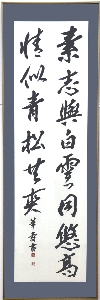 素志與白雲同悠高
情似青松共爽
華香書